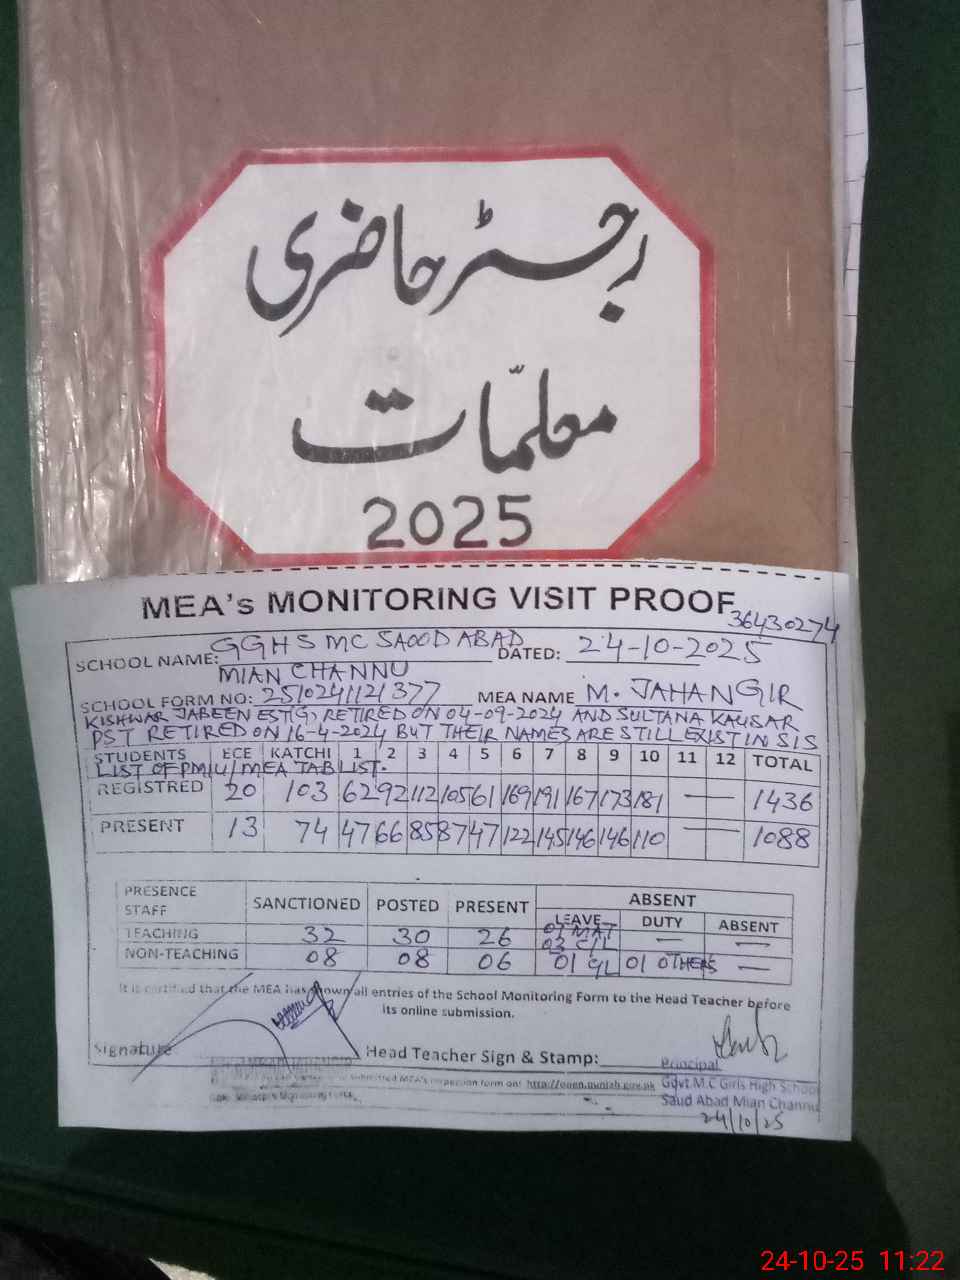 رجسٹر حاضری
معلّمات
2025
MEA's MONITORING VISIT PROOF
36430274
SCHOOL NAME: GGHS MC SAOOD ABAD DATED: 24-10-2025
MIAN CHANNU
SCHOOL FORM NO: 2510241121377 MEA NAME M. JAHANGIR
KISHWAR JABEEN EST(G) RETIRED ON 04-09-2024 AND SULTANA KAUSAR
PST RETIRED ON 16-4-2024 BUT THEIR NAMES ARE STILL EXIST IN SIS
STUDENTS ECE KATCHI 1 2 3 4 5 6 7 8 9 10 11 12 TOTAL
LIST OF PMIU/MEA TAB LIST.
REGISTRED 20 103 62 92 112 105 61 169 191 167 173 181 — 1436
PRESENT 13 74 47 66 85 87 47 122 145 146 146 110 — 1088
PRESENCE STAFF SANCTIONED POSTED PRESENT ABSENT
LEAVE DUTY ABSENT
TEACHING 32 30 26 01 MAT 03 C/L — —
NON-TEACHING 08 08 06 01 01 OTHERS —
It is certified that the MEA has shown all entries of the School Monitoring Form to the Head Teacher before
its online submission.
Signature Head Teacher Sign & Stamp:
Principal
submitted MEA's inspection form on: http://open.pmiu.gov.pk
Govt.M.C Girls High School
Saud Abad Mian Channu
24/10/25
24-10-25 11:22